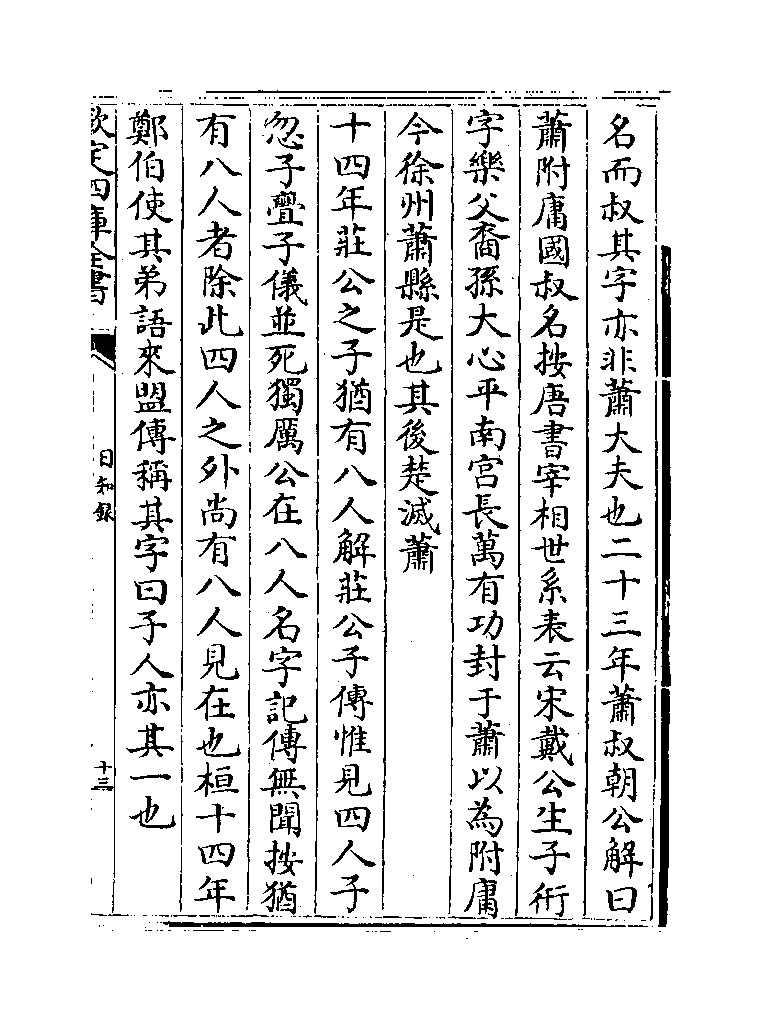 名而叔其字亦非蕭大夫也二十三年蕭叔朝公解曰
蕭附庸國叔名按唐書宰相世系表云宋戴公生子衎
字樂父裔孫大心平南宫長萬有功封于蕭以為附庸
今徐州蕭縣是也其後楚滅蕭
十四年莊公之子猶有八人解莊公子傳惟見四人子
忽子亹子儀並死獨厲公在八人名字記傳無聞按猶
有八人者除此四人之外尚有八人見在也桓十四年
鄭伯使其弟語來盟傳稱其字曰子人亦其一也
欽定四庫全書
日知録
十三